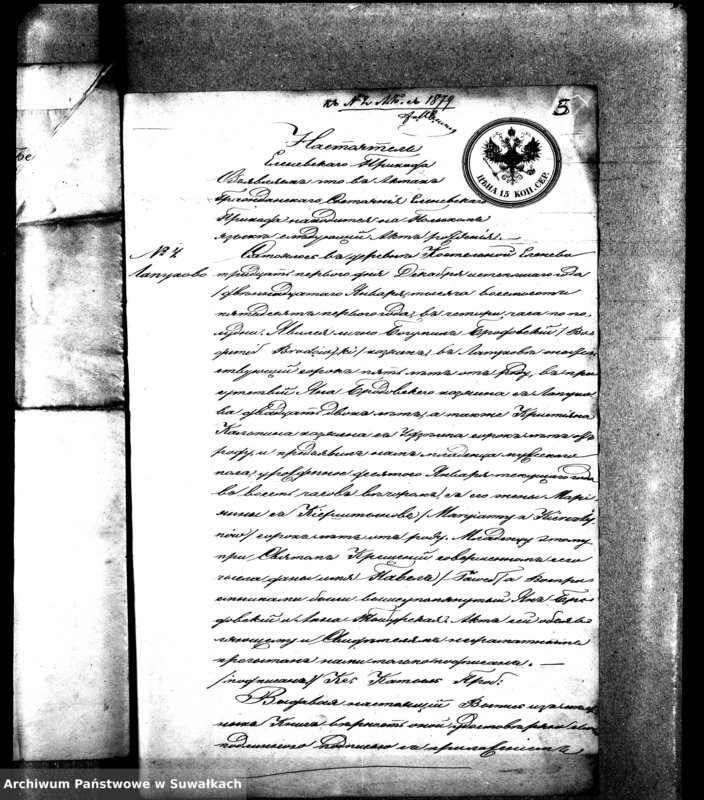 къ № 2 1879
5
ЦѢНА 15 КОП. СЕР.
Настоятель
Еленевскаго Прихода
Объявляетъ что въ Актахъ
Гражданскаго Состоянія Еленевскаго
Прихода находится на Польскомъ
языкѣ слѣдующій Актъ рожденія. —
№ 4
Лапухово
Состоялось въ деревнѣ Костельной Еленево
тридцать перваго дня Декабря истекшаго года
/двенадцатаго Января/ тысяча восемьсотъ
пятьдесятъ перваго года, въ четыри часа по по-
лудни. Явился лично Бродовскій /
Brodowski/ хозяинъ, въ Лапуховѣ жител-
ствующій сорока пять лѣтъ отъ роду, въ при-
сутствіи Яна Бродовскаго хозяина съ Лапухо-
ва двадцать двохъ лѣтъ, а также Криштіяна
хозяина съ сорокъ лѣтъ отъ
роду, и предъявилъ намъ младенца мужескаго
пола, урожденное десятаго Января текущаго года
въ восемь часовъ вечеромъ, съ его жены Мари-
янны съ /Maryanny z
/ сорока лѣтъ отъ роду. Младенцу этому
при Святомъ Крещеніи совершенномъ сего
числа дано имя Павелъ / Paweł / а Воспри-
емниками были вышеупомянутый Янъ Бро-
довскій и Анна Актъ сей объяв-
ляющему и Свидѣтелямъ неграматнымъ
прочитанъ нами токмо подписанъ. —
/подписалъ/ Кс. Проб.
Выдавая настоящій Выпись изъ
Книгъ вѣрность оной удостовѣряю
подлиннаго подписью съ приложеніемъ
Archiwum Państwowe w Suwałkach